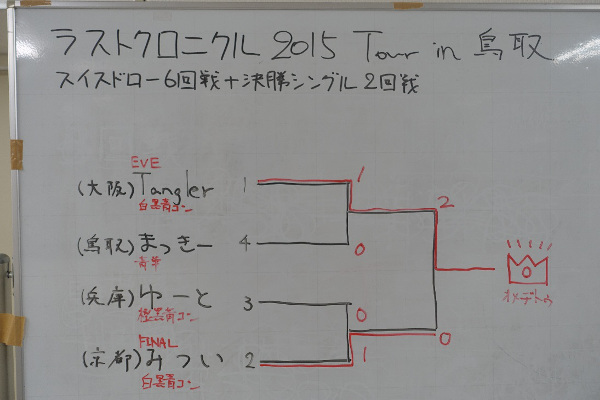 ラストクロニクル 2015 Tour in 鳥取
スイスドロー6回戦+決勝シングル2回戦
EVE
(大阪) Tangler 1
白黒青コン
(鳥取) まっきー 4
青単
(兵庫) ゆーと 3
緑黒青コン
FINAL
(京都) みつい 2
白黒青コン
1
0
0
1
2
0
オメデトウ